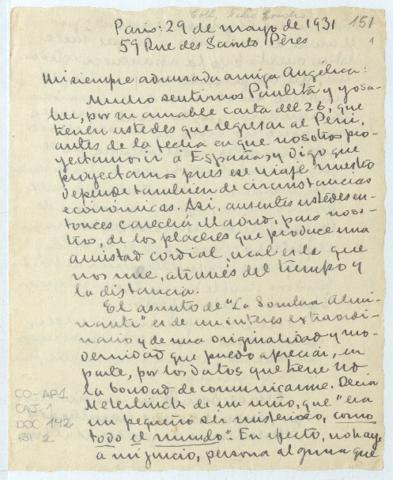 151
1
Paris: 29 de mayo de 1931
59 Rue des Saints Pères
Mi siempre admirada amiga Angélica:
Mucho sentimos Paulette y yo sa-
ber, por su amable carta del 26, que
tienen ustedes que regresar al Perú,
antes de la fecha en que nosotros pro-
yectamos ir a España, y digo que
proyectamos pues ese viaje nuestro
depende tambien de circunstancias
económicas. Asi, ausentes ustedes en-
tonces carecerá Madrid, para noso-
tros, de los placeres que produce una
amistad cordial, cual es la que
nos une, através del tiempo y
la distancia.
El asunto de "La Sombra Alucinante"
es de un interes extraordi-
nario y de una originalidad y mo-
dernidad que puedo apreciar, en
parte, por los datos que tiene Ud
la bondad de comunicarme. Decia
Meterlinck de un niño, que "era
un pequeño ser misterioso, como
todo el mundo". En efecto, no hay,
a mi juicio, persona alguna que
CO-AP.1
CAJ. 1
DOC 142
FOL 2